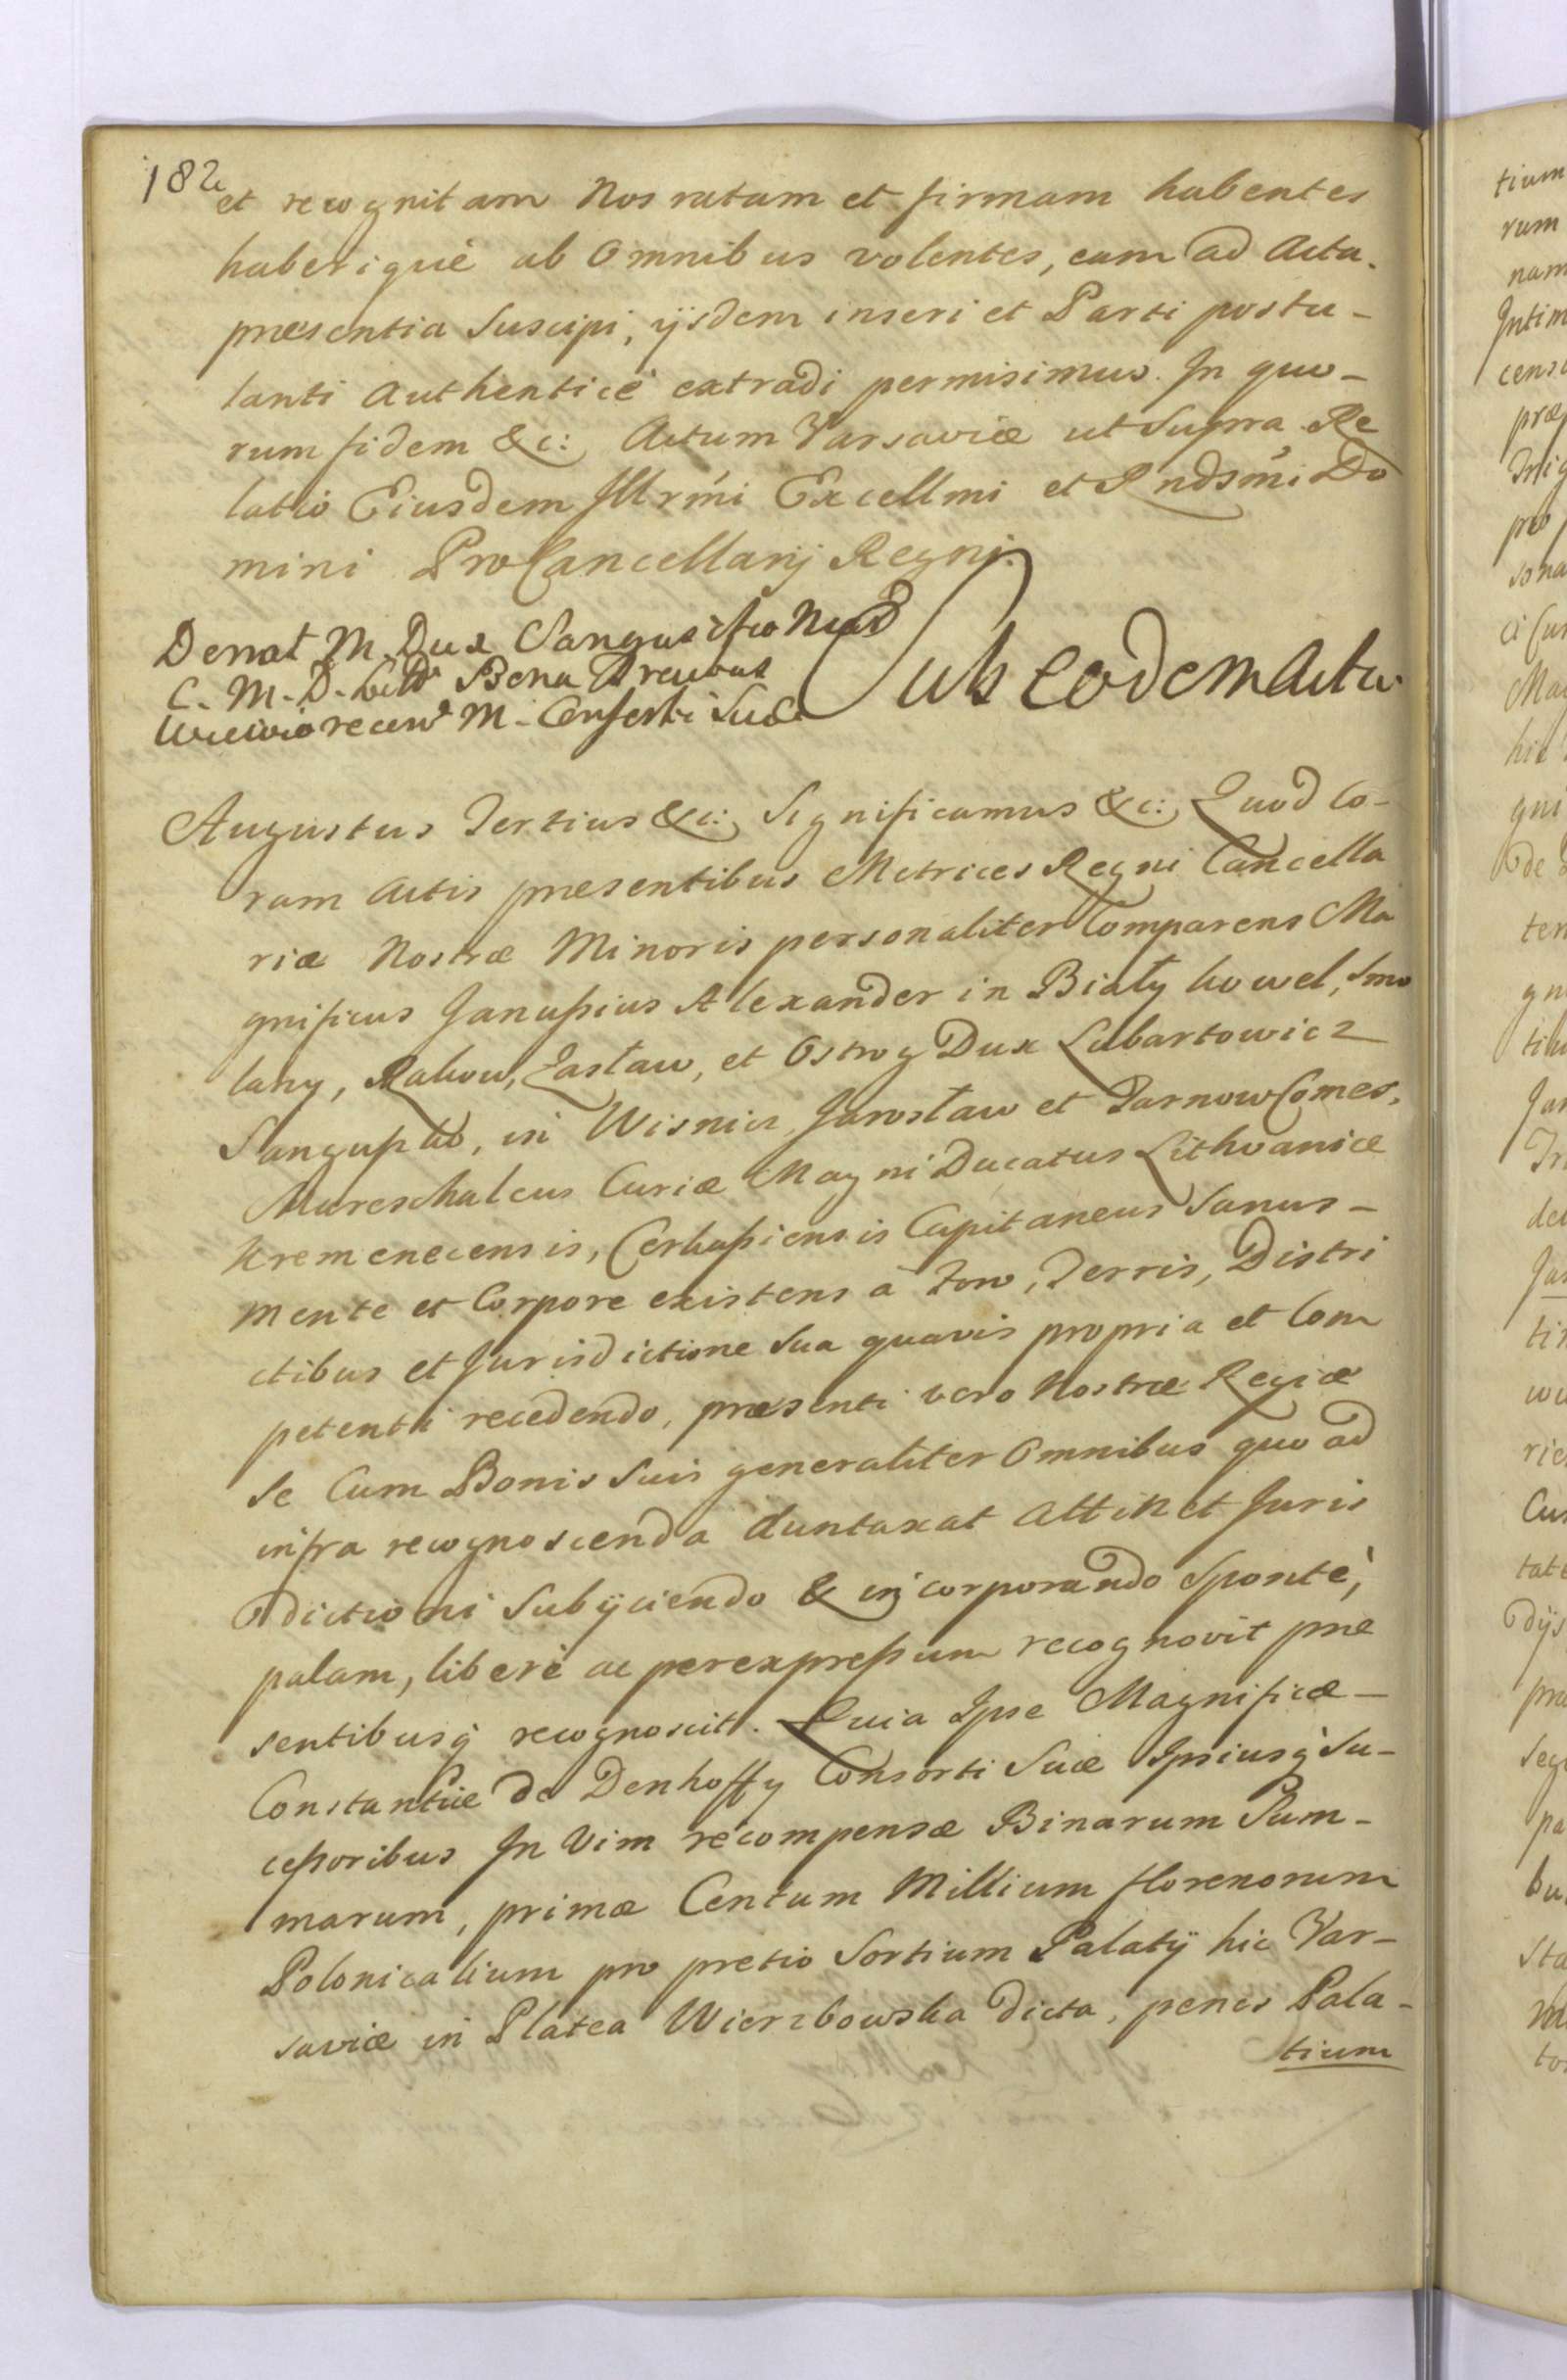 182
et recognitam Nos ratam et firmam habentes
haberique ab Omnibus volentes, eam ad Acta
præsentia Suscipi, ijsdem inseri et Parti postu-
lanti Authenticè extradi permisimus. In quo-
rum fidem &c: Actum Varsaviæ ut Supra Re
latio Eiusdem Illrmi Excellmi et Rndsmi Do
mini ProCancellarij Regni
Donat M. Dux Sangusko
C. M. D. Litt Bona
M. Consorti Suæ
Sub eodem Actu
Augustus Tertius &c: Significamus &c: Quod Co-
ram Actis præsentibus Metrices Regni Cancella
riæ Nostræ Minoris personaliter Comparens Ma
gnificus Janußius Alexander in Biały Kowel, Smo
lany, Rakow, Zasław, et Ostrog Dux Lubartowicz
Sanguszko, in Wisnicz Jarosław et Tarnow Comes,
Mareschalcus Curiæ Magni Ducatus Lithvaniæ
Kremenecensis, Cerkaßiensis Capitaneus Sanus-
mente et Corpore existens à Foro, Terris, Distri
ctibus et Jurisdictione Sua quavis propria et Com
petenti recedendo, præsenti vero Nostræ Regiæ
Se Cum Bonis Suis generaliter Omnibus quo ad
infra recognoscenda duntaxat Attinet Juris
dictioni Subijciendo & incorporando Spontè,
palam, liberè ac per expreßum recognovit præ
sentibusq recognoscit. Quia Ipse Magnificæ-
Constantiæ de Denhoffy Consorti Suæ Ipsiusq Su-
ceßoribus In Vim recompensæ Binarum Sum-
marum, primæ Centum Millium florenorum
Polonicalium pro pretio Sortium Palatij hic Var-
saviæ in Platea Wierzbowska dicta, penes Pala-
tium
tium
rum
nam
Intim
cens
præ